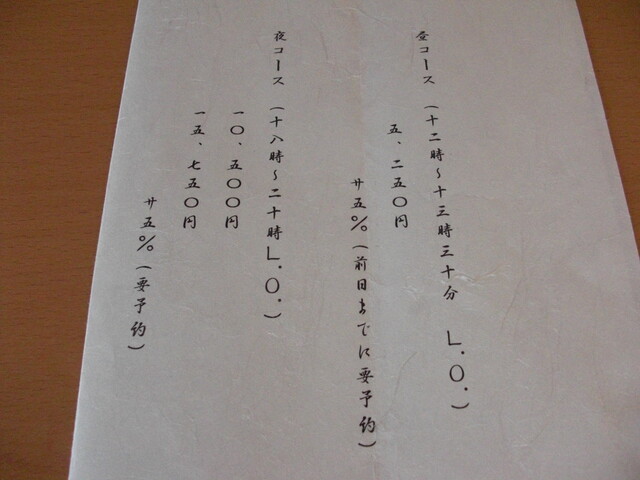 昼コース （十二時～十三時三十分　L.O.）
五、二五〇円
廿五％（前日までに要予約）
夜コース （十八時～二十時L.O.）
一〇、五〇〇円
一五、七五〇円
廿五％（要予約）